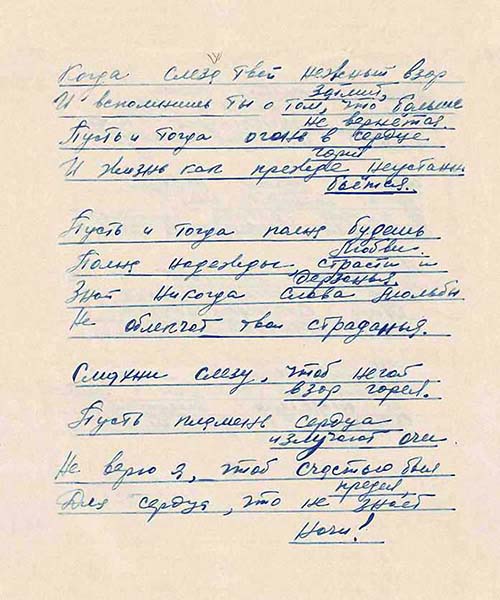 Когда слеза твой нежный взор
затмит,
И вспомнишь ты о том, что больше
не вернётся.
Пусть и тогда огонь в сердце
горит
И жизнь как прежде неустанн
бьётся.
Пусть и тогда полна будешь
Любви
Полна надежды страсти и
дерзанья.
Знай никогда слова мольбы
Не облегчат твои страданья.
Смахни слезу, чтоб негой
взор горел.
Пусть пламень сердца
излучают очи
Не верю я, чтоб счастью был
предел,
Для сердца, что не знает
ночи!